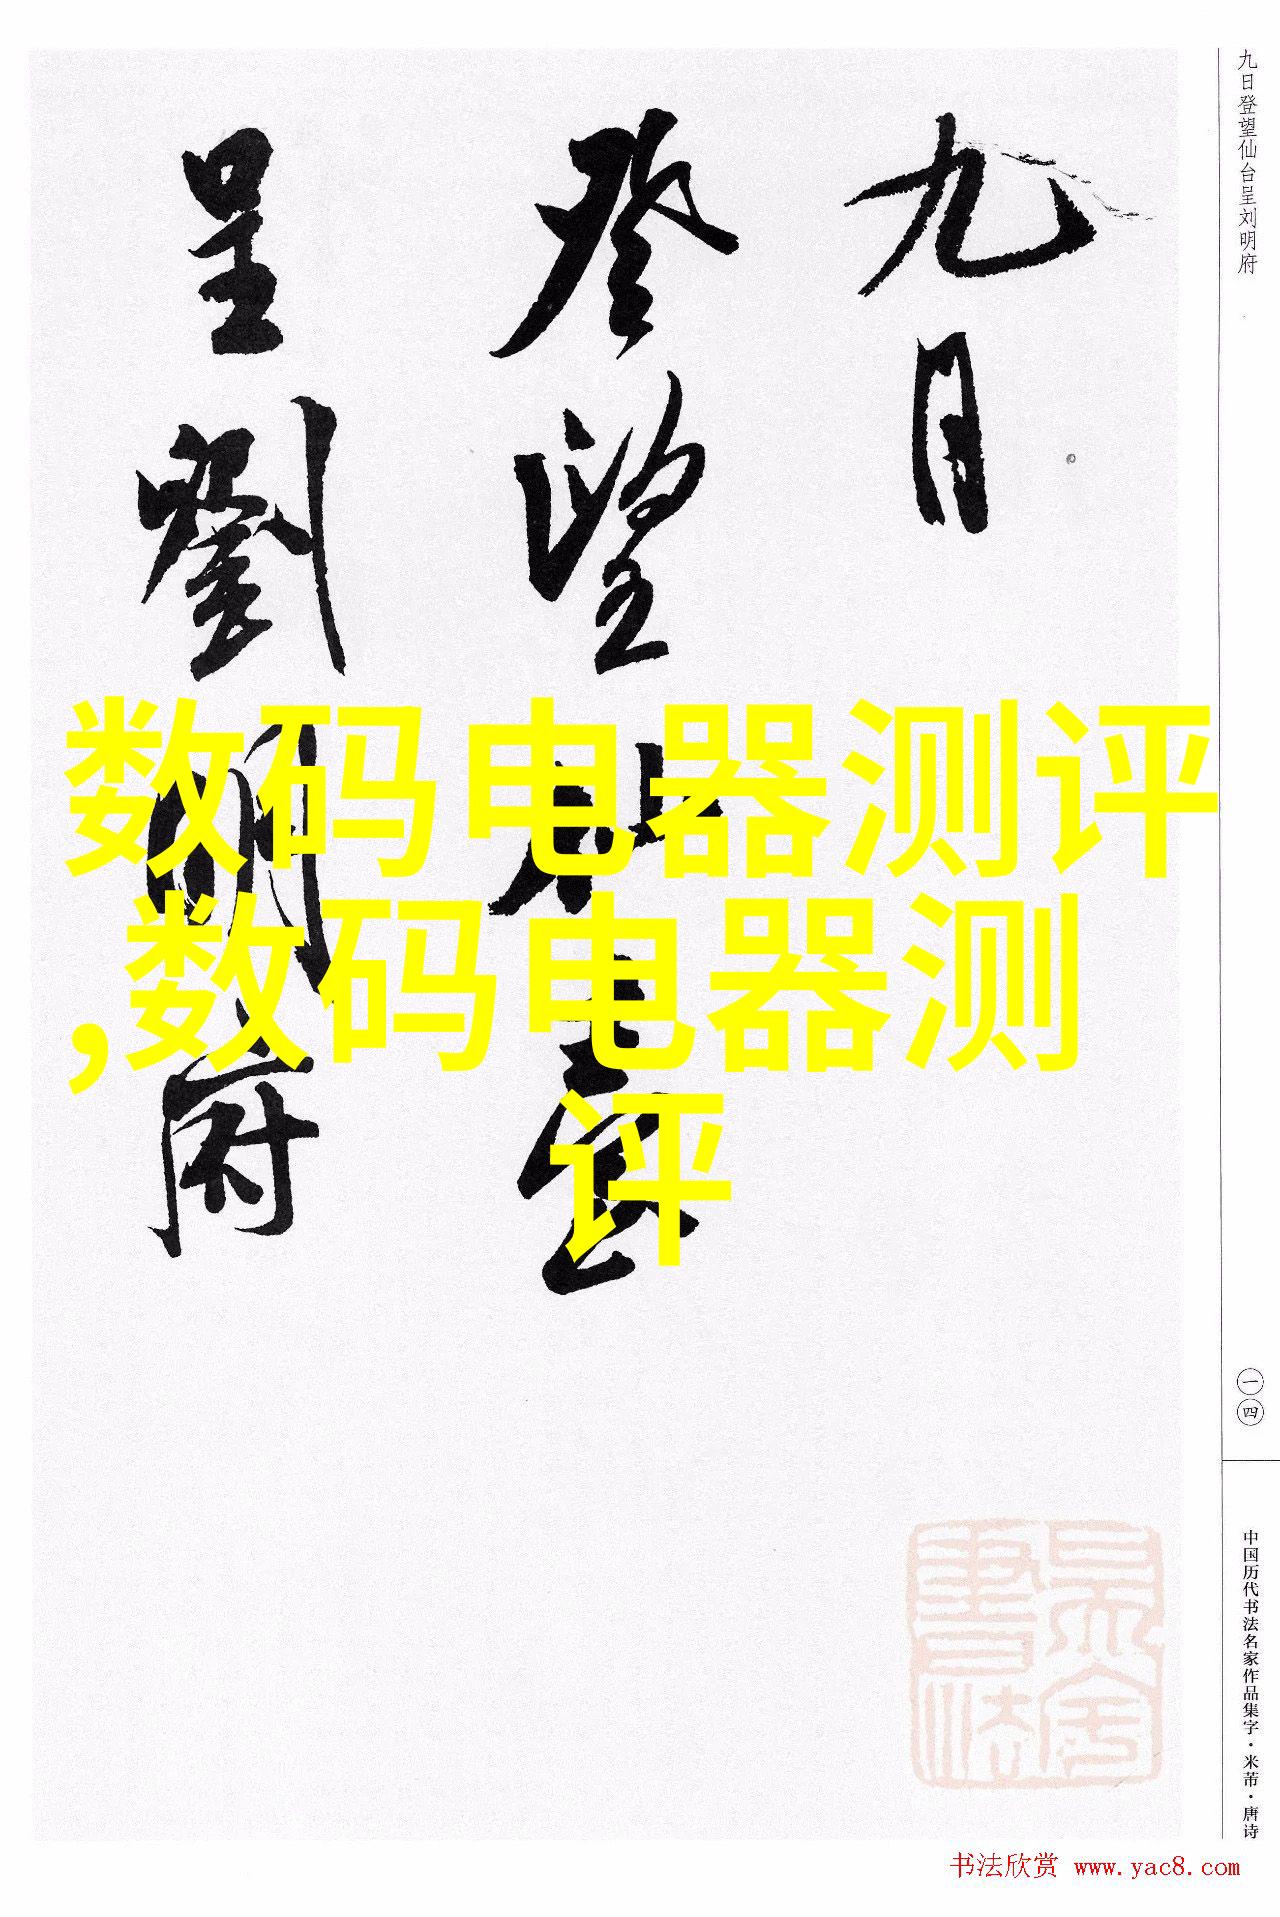 九日
登望仙台
呈劉明府
数码电器测评
,数码电器测
评
九日登望仙台呈刘明府
一四
中国历代书法名家作品集字·米芾·唐诗
书法欣赏 www.yac8.com